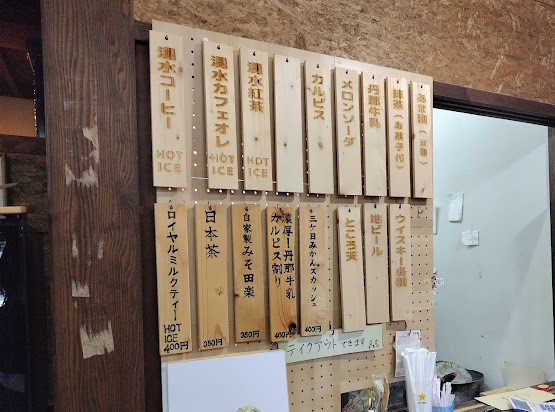 湧水コーヒー HOT ICE
湧水カフェオレ HOT ICE
湧水紅茶 HOT ICE
カルピス
メロンソーダ
丹那牛乳
抹茶(お菓子付)
ロイヤルミルクティー HOT ICE 400円
日本茶 350円
自家製みそ田楽 350円
濃厚!丹那牛乳カルピス割り 400円
三ケ日みかんスカッシュ 400円
ところ天
地ビール
ウイスキー
テイクアウトできます